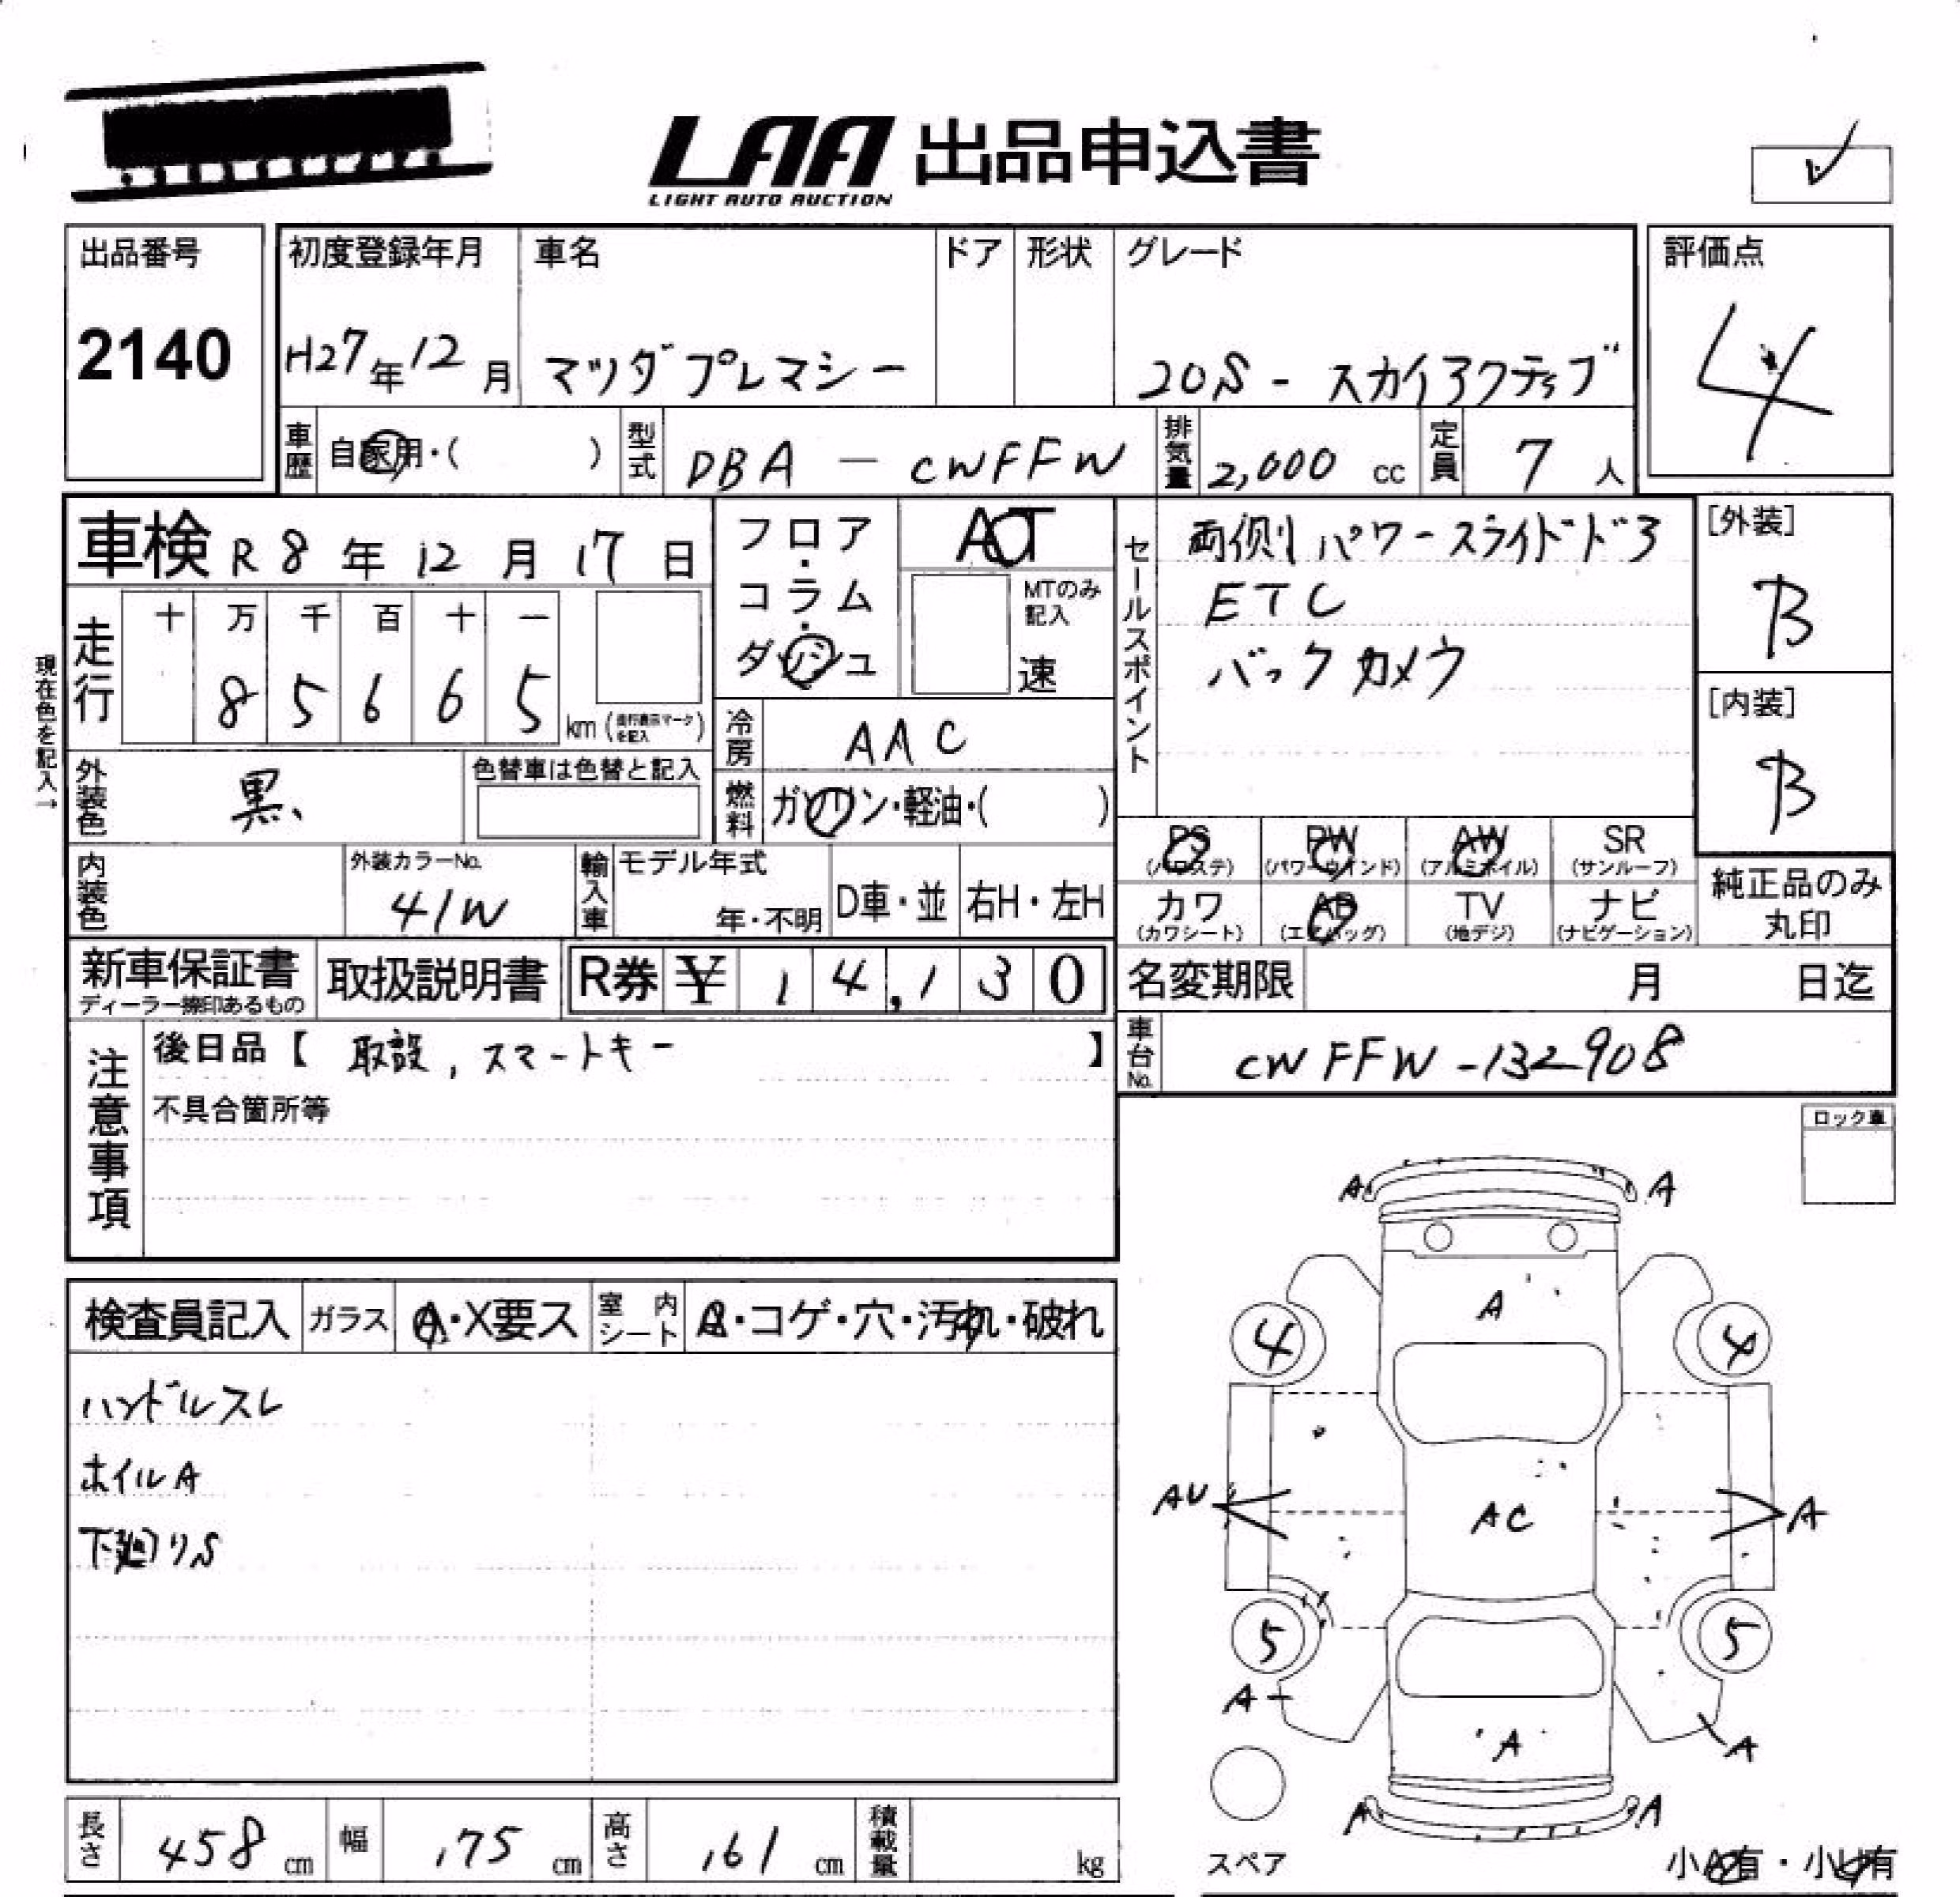 LAA 出品申込書
LIGHT AUTO AUCTION
出品番号
2140
初度登録年月
H27年12月
車名
マツダ プレマシー
ドア
形状
グレード
20S - スカイアクティブ
評価点
4
車歴
自家用・( )
型式
DBA - CWFFW
排気量
2,000 cc
定員
7 人
車検 R 8 年 12 月 17 日
フロア・コラム・ダッシュ
AT
MTのみ記入
速
セールスポイント
両側パワースライドドア
ETC
バックカメラ
[外装]
B
[内装]
B
現在色を記入→
走行
十 万 千 百 十 一
8 5 6 6 5
km (走行表示マークを記入)
冷房
AAC
外装色
黒、
色替車は色替と記入
燃料
ガソリン・軽油・( )
内装色
外装カラーNo.
41W
輸入車
モデル年式
年・不明
D車・並
右H・左H
PS (パワステ)
PW (パワーウインド)
AW (アルミホイル)
SR (サンルーフ)
カワ (カワシート)
AB (エアバッグ)
TV (地デジ)
ナビ (ナビゲーション)
純正品のみ丸印
新車保証書
ディーラー捺印あるもの
取扱説明書
R券 ¥ 14,130
名変期限 月 日迄
車台No.
CWFFW-132908
注意事項
後日品【 取説, スマートキー 】
不具合箇所等
ロック車
検査員記入
ガラス
A・X要ス
室内シート
・コゲ・穴・汚れ・破れ
ハンドルスレ
ホイルA
下廻りS
A A
A
4 4
AU AC A
5 5
A A
A
A A
スペア
小A有・小U有
長さ 458 cm
幅 175 cm
高さ 161 cm
積載量 kg